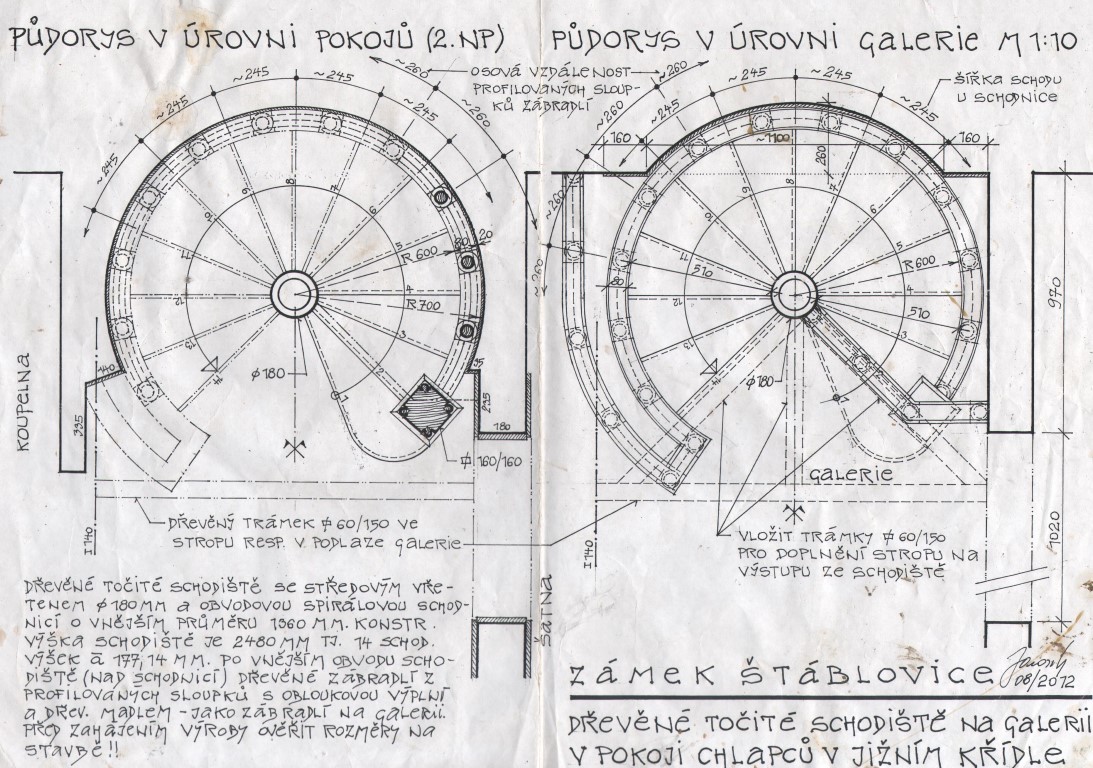 PŮDORYS V ÚROVNI POKOJŮ (2. NP)
PŮDORYS V ÚROVNI GALERIE M 1:10
OSOVÁ VZDÁLENOST
PROFILOVANÝCH SLOUP-
KŮ ZÁBRADLÍ
ŠÍŘKA SCHODU
U SCHODNICE
~245
~245
~245
~245
~245
~260
~260
~260
~260
~260
~260
~245
~245
~245
~245
160
~1100
160
260
80
20
R 600
R 700
φ180
95
235
180
140
335
160/160
510
80
R 600
510
φ180
970
1020
3
4
5
6
7
8
9
10
11
12
13
14
3
4
5
6
7
8
9
10
11
12
13
14
KOUPELNA
ŠATNA
GALERIE
I 140
I 140
DŘEVĚNÝ TRÁMEK 60/150 VE
STROPU RESP. V PODLAZE GALERIE
VLOŽIT TRÁMKY 60/150
PRO DOPLNĚNÍ STROPU NA
VÝSTUPU ZE SCHODIŠTĚ
DŘEVĚNÉ TOČITÉ SCHODIŠTĚ SE STŘEDOVÝM VŘE-
TENEM φ 180 MM A OBVODOVOU SPIRÁLOVOU SCHOD-
NICÍ O VNĚJŠÍM PRŮMĚRU 1360 MM. KONSTR.
VÝŠKA SCHODIŠTĚ JE 2480 MM TJ. 14 SCHOD.
VÝŠEK Ā 177,14 MM. PO VNĚJŠÍM OBVODU SCHO-
DIŠTĚ (NAD SCHODNICÍ) DŘEVĚNÉ ZÁBRADLÍ Z
PROFILOVANÝCH SLOUPKŮ S OBLOUKOVOU VÝPLNÍ
A DŘEV. MADLEM - JAKO ZÁBRADLÍ NA GALERII.
PŘED ZAHÁJENÍM VÝROBY OVĚŘIT ROZMĚRY NA
STAVBĚ!!
ZÁMEK ŠTÁBLOVICE
08/2012
DŘEVĚNÉ TOČITÉ SCHODIŠTĚ NA GALERII
V POKOJI CHLAPCŮ V JIŽNÍM KŘÍDLE